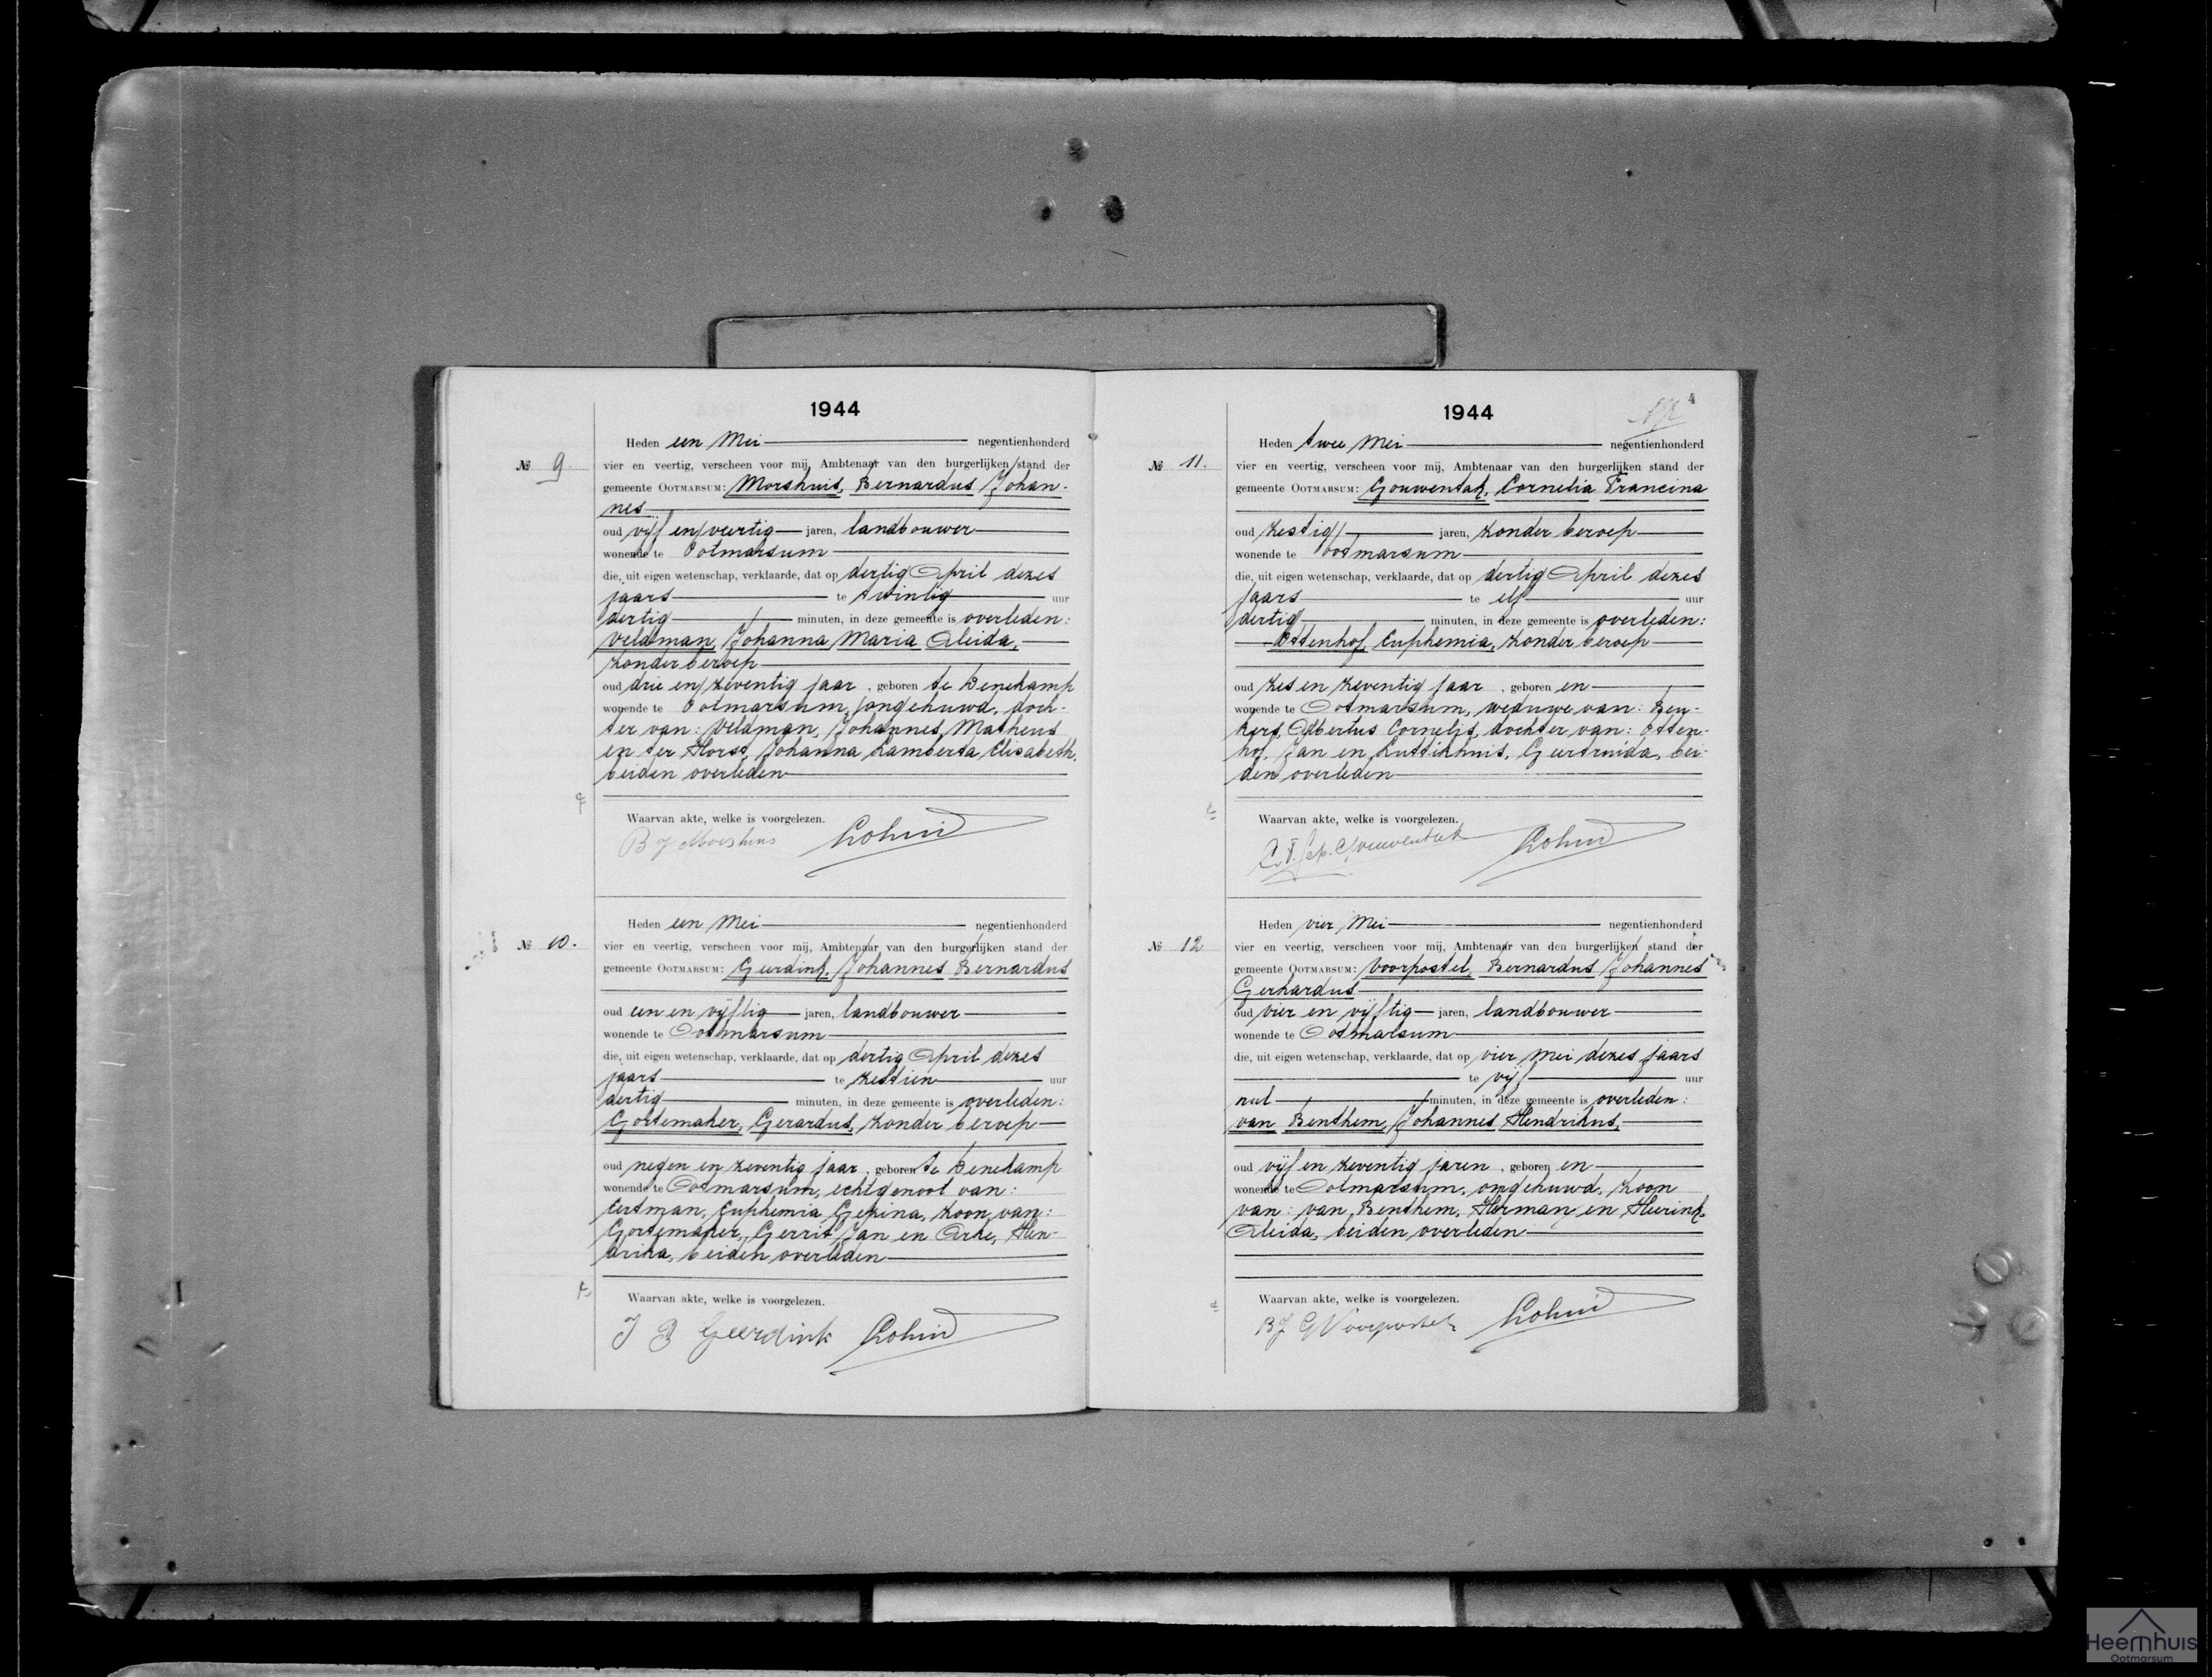 1944
Heden een Mei negentienhonderd
№ 9. vier en veertig, verscheen voor mij, Ambtenaar van den burgerlijken stand der
gemeente OOTMARSUM: Morshuis, Bernardus Johan-
nes
oud vijf en veertig jaren, landbouwer
wonende te Ootmarsum
die, uit eigen wetenschap, verklaarde, dat op dertig April dezes
jaars te twintig uur
dertig minuten, in deze gemeente is overleden:
Veldman, Johanna Maria Aleida,
zonder beroep
oud drie en zeventig jaar, geboren te Denekamp
wonende te Ootmarsum, ongehuwd, doch-
ter van: Veldman, Johannes Matheus
en ter Horst, Johanna Lamberta Elisabeth,
beiden overleden
Waarvan akte, welke is voorgelezen.
B J Morshuis
Heden een Mei negentienhonderd
№ 10. vier en veertig, verscheen voor mij, Ambtenaar van den burgerlijken stand der
gemeente OOTMARSUM: Geerdink, Johannes Bernardus
oud een en vijftig jaren, landbouwer
wonende te Ootmarsum
die, uit eigen wetenschap, verklaarde, dat op dertig April dezes
jaars te zestien uur
dertig minuten, in deze gemeente is overleden:
Gortemaker, Gerardus, zonder beroep
oud negen en zeventig jaar, geboren te Denekamp
wonende te Ootmarsum, echtgenoot van:
Euphemia Gezina, zoon van:
Gortemaker, Gerrit Jan en Arke, Hen-
drika, beiden overleden
Waarvan akte, welke is voorgelezen.
J B Geerdink
1944
4
Heden twee Mei negentienhonderd
№ 11. vier en veertig, verscheen voor mij, Ambtenaar van den burgerlijken stand der
gemeente OOTMARSUM: Gouwentak, Cornelia Francina
oud zestig jaren, zonder beroep
wonende te Ootmarsum
die, uit eigen wetenschap, verklaarde, dat op dertig April dezes
jaars te elf uur
dertig minuten, in deze gemeente is overleden:
Ottenhof, Euphemia, zonder beroep
oud zes en zeventig jaar, geboren en
wonende te Ootmarsum, weduwe van: Ben-
kers, Albertus Cornelis, dochter van: Otten-
hof, Jan en Luttikhuis, Geertruida, bei-
den overleden
Waarvan akte, welke is voorgelezen.
Heden vier Mei negentienhonderd
№ 12 vier en veertig, verscheen voor mij, Ambtenaar van den burgerlijken stand der
gemeente OOTMARSUM: Voorpostel, Bernardus Johannes
Gerhardus
oud vier en vijftig jaren, landbouwer
wonende te Ootmarsum
die, uit eigen wetenschap, verklaarde, dat op vier Mei dezes jaars
te vijf uur
nul minuten, in deze gemeente is overleden:
van Benthem, Johannes Hendrikus,
oud vijf en zeventig jaren, geboren en
wonende te Ootmarsum, ongehuwd, zoon
van: van Benthem, Herman en Heerink,
Aleida, beiden overleden
Waarvan akte, welke is voorgelezen.
BJ G Voorpostel
Heemhuis
Ootmarsum